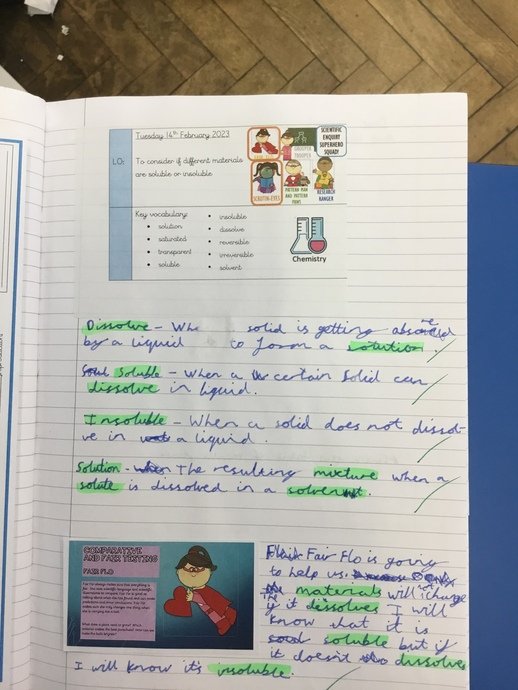 Tuesday 14th February 2023
LO: To consider if different materials
are soluble or insoluble
SCIENTIFIC
ENQUIRY
SUPERHERO
SQUAD!
GROUPER
TROOPER
SCRUTIN-EYES
PATTERN MAN
AND PATTERN
PAWS
RESEARCH
RANGER
Key vocabulary:
• solution
• saturated
• transparent
• soluble
• insoluble
• dissolve
• reversible
• irreversible
• solvent
Chemistry
Dissolve - Whe solid is getting
by a liquid to form a solution.
Soluble - When a certain solid can
dissolve in liquid.
Insoluble - When a solid does not dissol-
ve in a liquid.
Solution - The resulting mixture when a
solute is dissolved in a solvent.
COMPARATIVE
AND FAIR TESTING
FAIR FLO
Fair Flo is going
to help us.
The materials will not change
if it dissolves I will
know that it is
soluble but if
it doesn't dissolve
I will know it's insoluble.